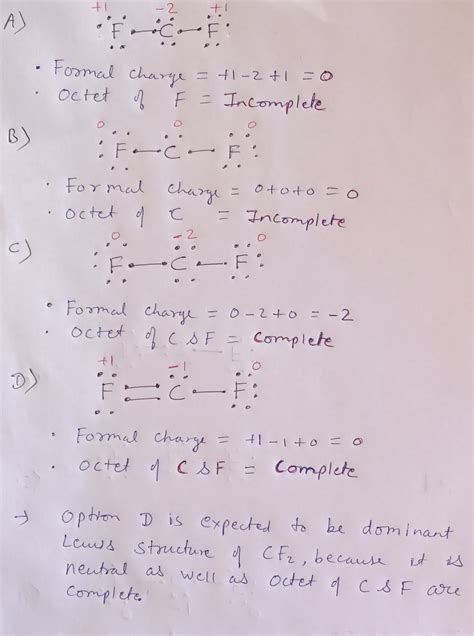 +1 -2 +1
A) :F—C—F:
• Formal charge = +1-2+1 = 0
• Octet of F = Incomplete
0 0 0
B) :F—C—F:
• Formal charge = 0+0+0 = 0
• Octet of C = Incomplete
0 -2 0
C) :F—C—F:
• Formal charge = 0-2+0 = -2
• Octet of C & F = Complete
+1 -1 0
D) F=C—F:
• Formal charge = +1-1+0 = 0
• Octet of C & F = Complete
→ Option D is expected to be dominant
Lewis structure of CF2, because it is
neutral as well as octet of C & F are
complete.